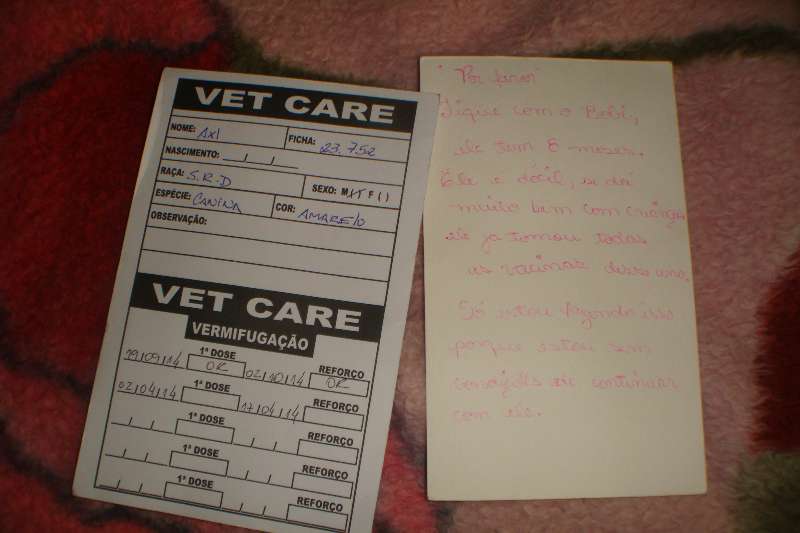 VET CARE
NOME: Axl FICHA: 23.752
NASCIMENTO: / /
RAÇA: S.R.D SEXO: M F ( )
ESPÉCIE: CANINA COR: AMARELO
OBSERVAÇÃO:
VET CARE
VERMIFUGAÇÃO
1ª DOSE REFORÇO
19/09/14 OR 02/10/14 OR
1ª DOSE REFORÇO
02/04/14 17/04/14
1ª DOSE REFORÇO
/ / / /
1ª DOSE REFORÇO
/ / / /
1ª DOSE REFORÇO
/ / / /
"Por favor"
Fique com o Bobi,
ele tem 8 meses.
Ele é dócil, se dá
muito bem com criança
ele ja tomou todas
as vacinas desse ano.
Só estou fazendo isso
porque estou sem
condições de continuar
com ele.